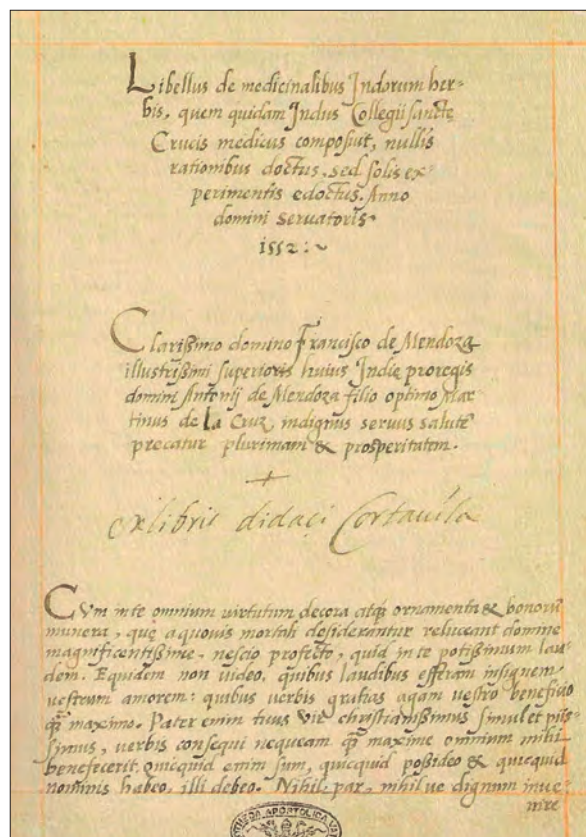 Libellus de medicinalibus Indorum her-
bis, quem quidam Indus Collegii sancte
Crucis medicus composuit, nullis
rationibus doctus, sed solis ex-
perimentis edoctus. Anno
domini servatoris.
1552:~
Clarißimo domino Francisco de Mendoza
illustrißimi superioris huius Indie proregis
domini Antonij de Mendoza filio optimo Mar
tinus de la Cruz indignus servus salutē
precatur plurimam & prosperitatem.
ex libris didaci Cortavila
Cum in te omnium virtutum decora atq; ornamenta & bonorū
munera, quę a quovis mortali desiderantur reluceant domine
magnificentißime. nescio profecto, quid in te potißimum lau
dem. Equidem non video, quibus laudibus efferam insignem
vestrum amorem: quibus verbis gratias agam vestro beneficio
q̃ maximo. Pater enim tuus vir christianißimus simul et piis-
simus, verbis consequi nequeam q̃ maxime omnium mihi
benefecerit, quicquid enim sum, quicquid poßideo & quicquid
nominis habeo, illi debeo. Nihil par, nihil ve dignum inve
nire
APOSTOLICA